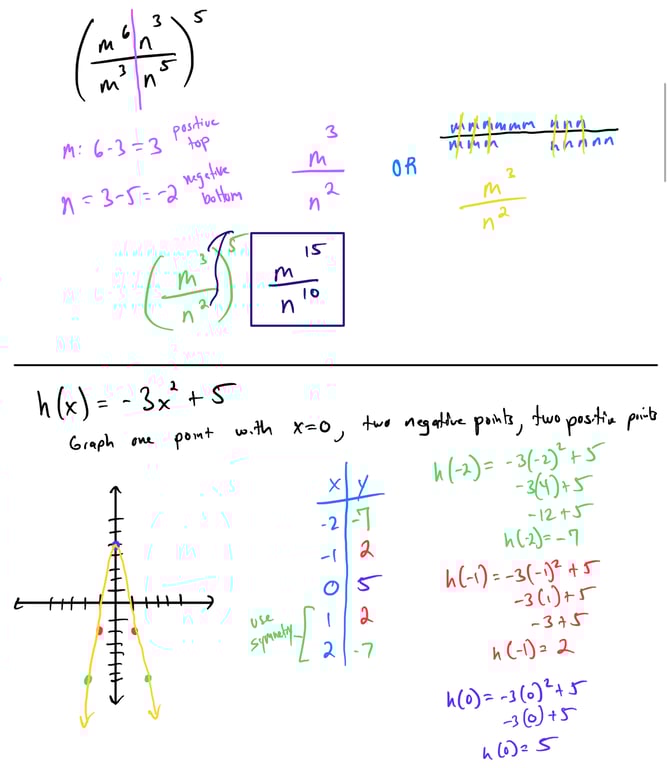 (m⁶ n³ / m³ n⁵)⁵
m: 6-3=3 positive top
n = 3-5=-2 negative bottom
m³ / n²
OR
mmmmmm nnn / mmm nnnnn
m³ / n²
(m³ / n²)⁵
m¹⁵ / n¹⁰
h(x) = -3x² + 5
Graph one point with x=0, two negative points, two positive points
x | y
-2 | -7
-1 | 2
0 | 5
1 | 2
2 | -7
use symmetry
h(-2) = -3(-2)² + 5
-3(4)+5
-12+5
h(-2) = -7
h(-1) = -3(-1)² + 5
-3(1)+5
-3+5
h(-1) = 2
h(0) = -3(0)² + 5
-3(0)+5
h(0) = 5